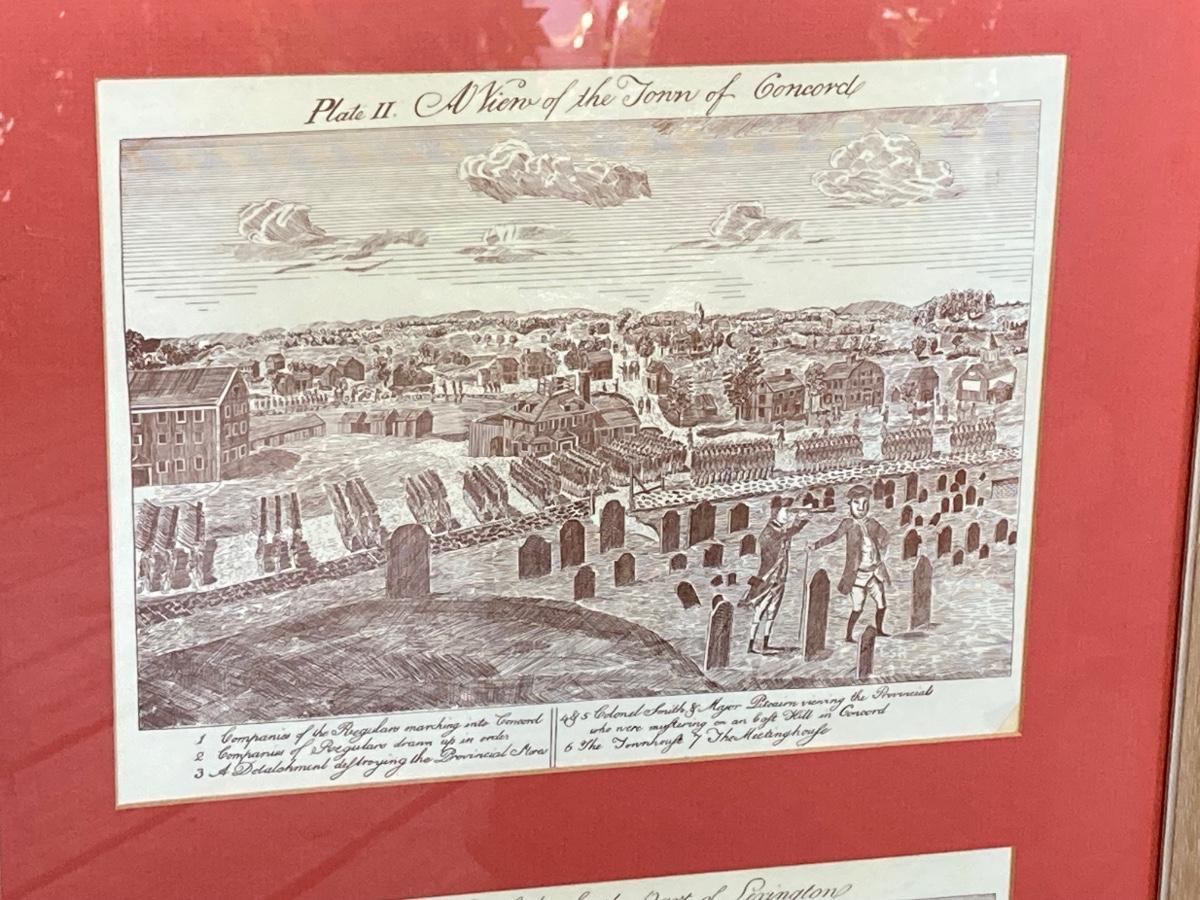 Plate II. A View of the Town of Concord
1 Companies of the Regulars marching into Concord
2 Companies of Regulars drawn up in order
3 A Detatchment destroying the Provincial Stores
4 & 5 Colonel Smith & Major Pitcairn viewing the Provincials
who were mustering on an East Hill in Concord
6 The Townhouse 7 The Meetinghouse
Part of Lexington